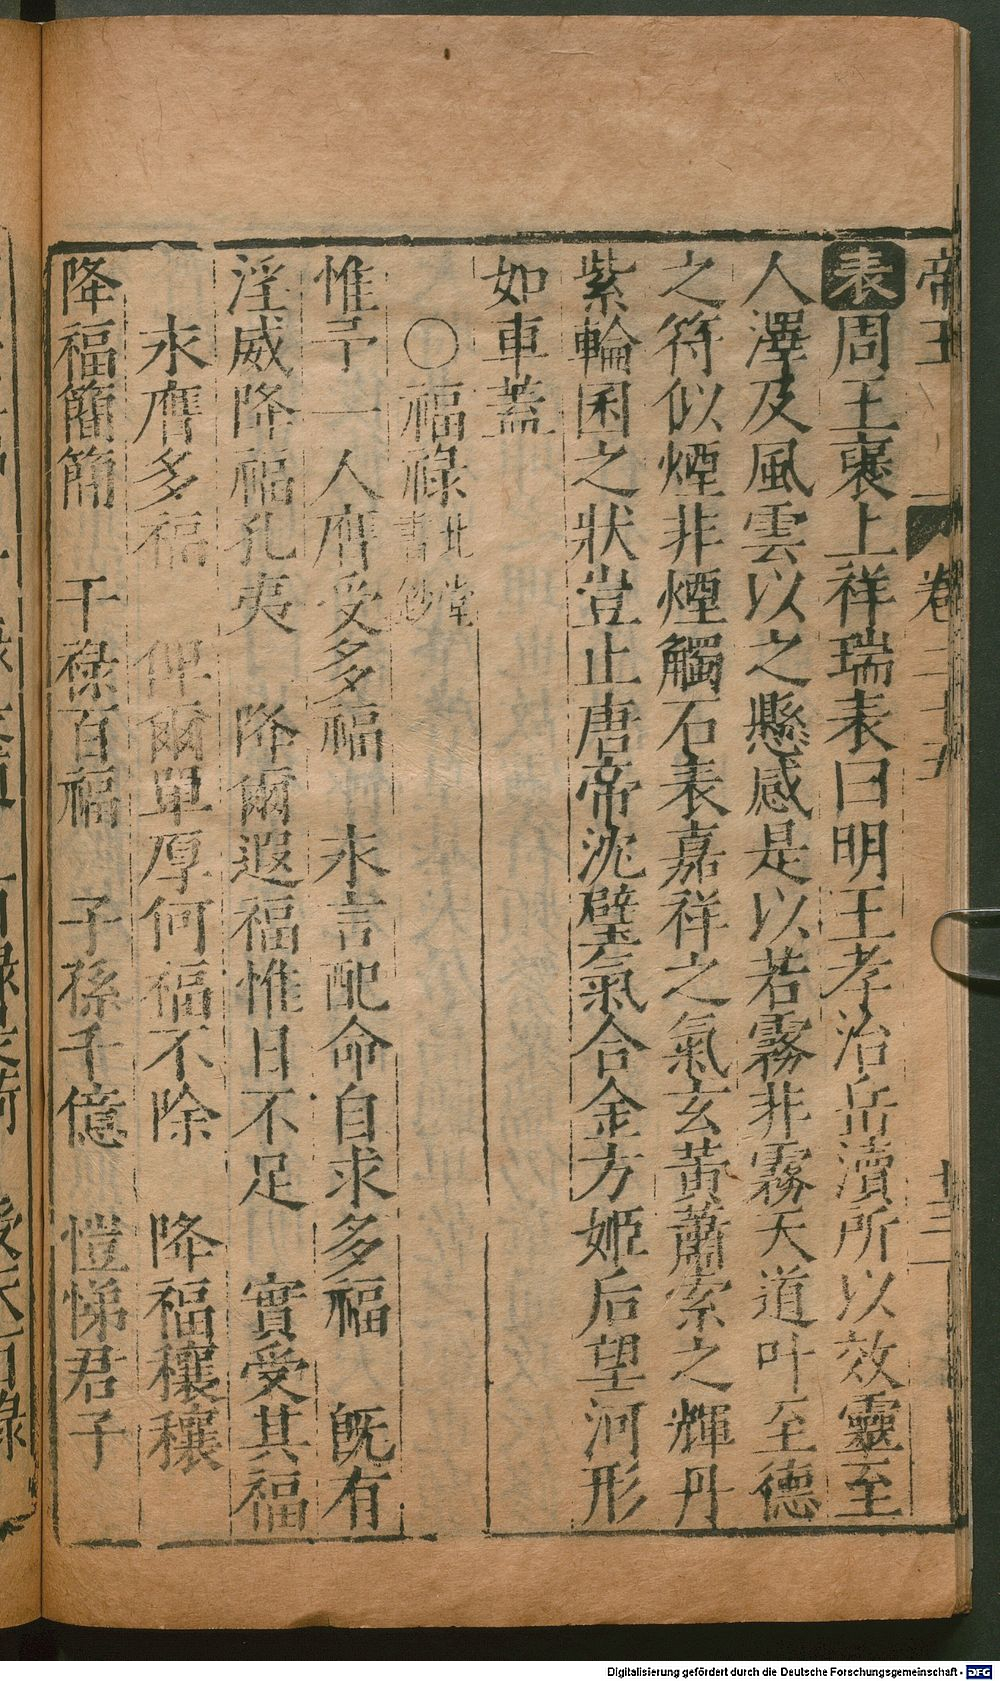 帝王 卷二十五 十三
表周王褒上祥瑞表曰明王孝治岳瀆所以效靈至
人澤及風雲以之懸感是以若霧非霧天道叶至德
之符似煙非煙觸石表嘉祥之氣玄黃蕭索之輝丹
紫輪囷之狀豈止唐帝沈璧氣合金方姬后望河形
如車蓋
〇福祿北堂書鈔
惟予一人膺受多福 永言配命自求多福 旣有
淫威降福孔夷 降爾遐福惟日不足 實受其福
永膺多福 俾爾單厚何福不除 降福穰穰
降福簡簡 干祿百福 子孫千億 愷悌君子
Digitalisierung gefördert durch die Deutsche Forschungsgemeinschaft - DFG